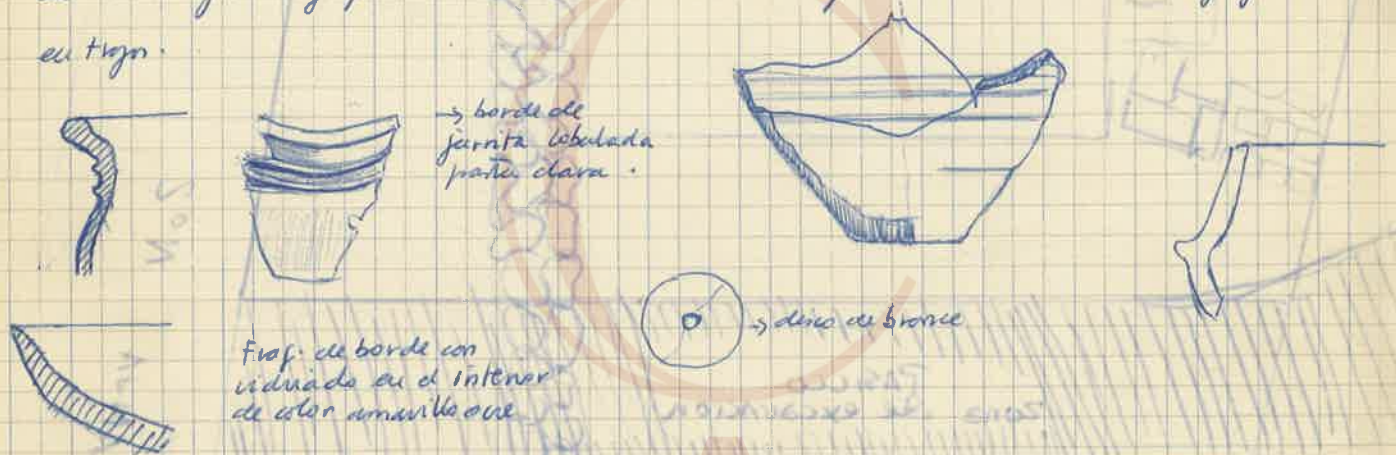 en
→ borde de
jarrita lobulada
pasta clara .
→ disco de bronce
Frag. de borde con
vidriado en el interior
de color amarillo ocre
Zona de excavación